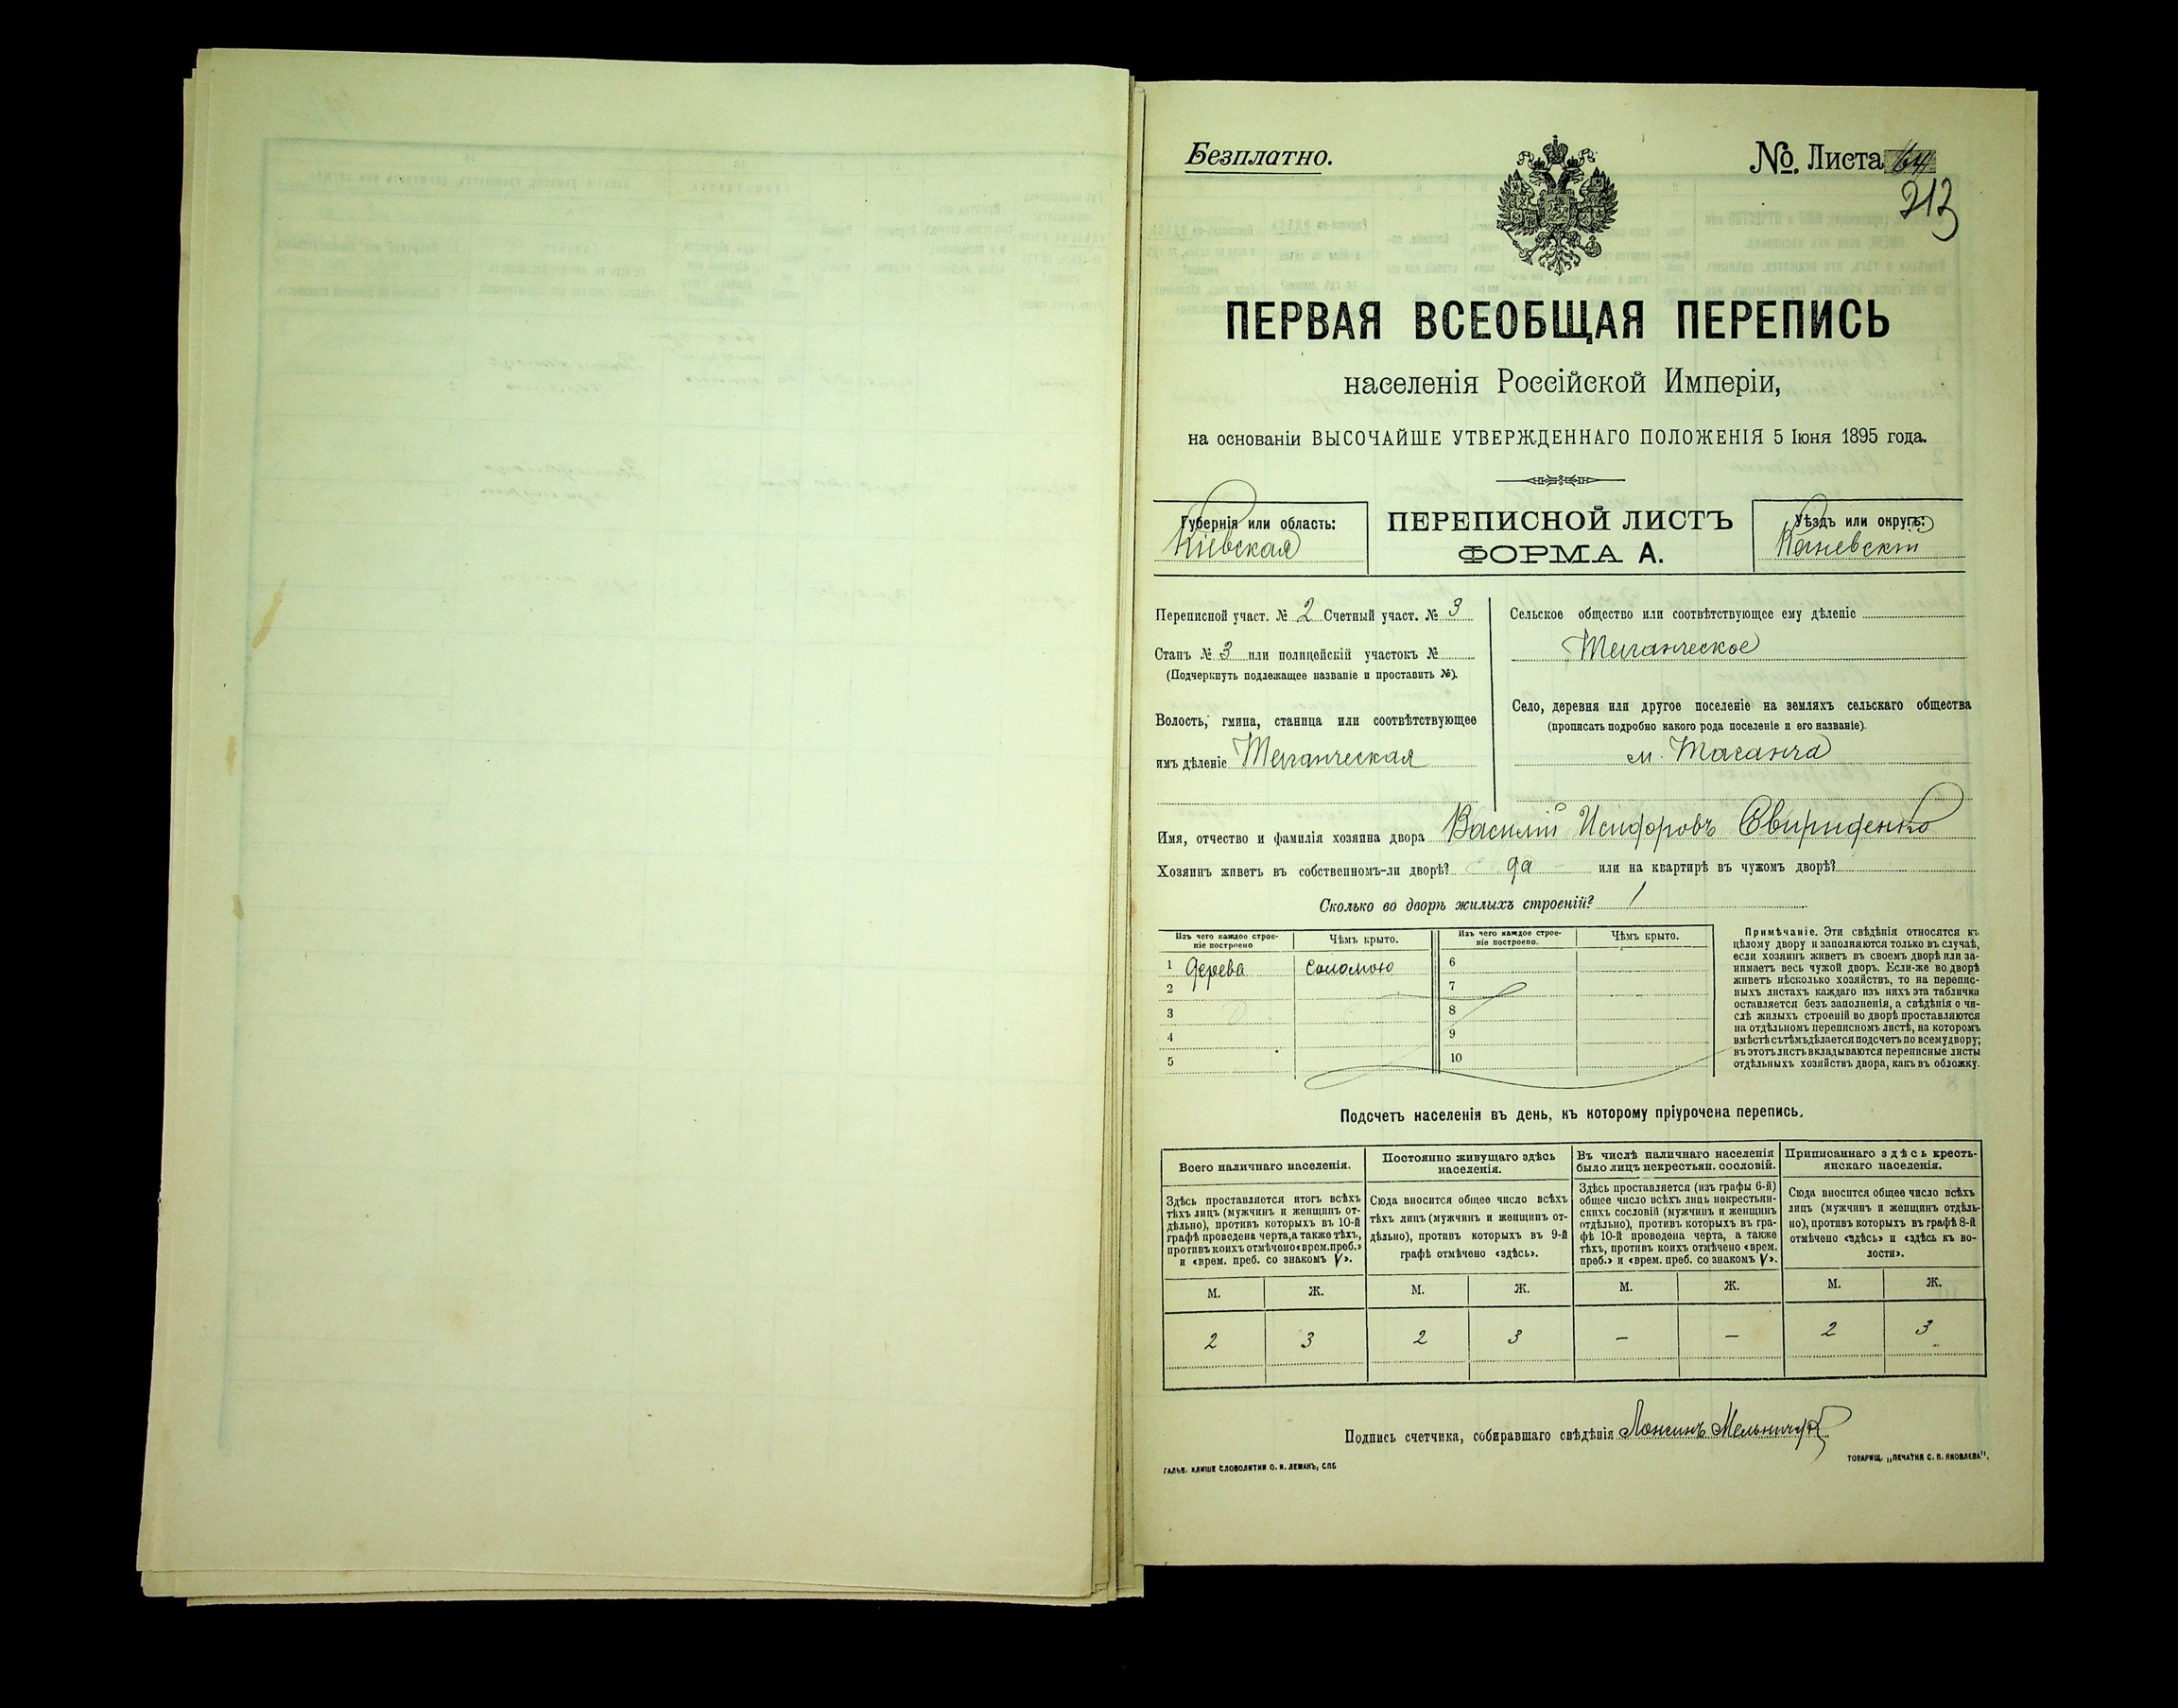 Безплатно.
№. Листа 64
213
ПЕРВАЯ ВСЕОБЩАЯ ПЕРЕПИСЬ
населенія Россійской Имперіи,
на основаніи ВЫСОЧАЙШЕ УТВЕРЖДЕННАГО ПОЛОЖЕНІЯ 5 Іюня 1895 года.
Губернія или область:
Кіевская
ПЕРЕПИСНОЙ ЛИСТЪ
ФОРМА А.
Уѣздъ или округъ:
Каневскій
Переписной участ. № 2 Счетный участ. № 3
Станъ № 3 или полицейскій участокъ №
(Подчеркнуть подлежащее названіе и проставить №).
Волость, гмина, станица или соотвѣтствующее
имъ дѣленіе Таганческая
Сельское общество или соотвѣтствующее ему дѣленіе
Таганческое
Село, деревня или другое поселеніе на земляхъ сельскаго общества
(прописать подробно какого рода поселеніе и его названіе).
м. Таганча
Имя, отчество и фамилія хозяина двора Василій Исидоровъ Свириденко
Хозяинъ живетъ въ собственномъ-ли дворѣ? да или на квартирѣ въ чужомъ дворѣ?
Сколько во дворѣ жилыхъ строеній? 1
Изъ чего каждое строе-
ніе построено
Чѣмъ крыто.
Изъ чего каждое строе-
ніе построено.
Чѣмъ крыто.
1 дерева соломою 6
2 7
3 8
4 9
5 10
Примѣчаніе. Эти свѣдѣнія относятся къ
цѣлому двору и заполняются только въ случаѣ,
если хозяинъ живетъ въ своемъ дворѣ или за-
нимаетъ весь чужой дворъ. Если-же во дворѣ
живетъ нѣсколько хозяйствъ, то на перепис-
ныхъ листахъ каждаго изъ нихъ эта табличка
оставляется безъ заполненія, а свѣдѣнія о чи-
слѣ жилыхъ строеній во дворѣ проставляются
на отдѣльномъ переписномъ листѣ, на которомъ
вмѣстѣ съ тѣмъ дѣлается подсчетъ по всему двору;
въ этотъ листъ вкладываются переписные листы
отдѣльныхъ хозяйствъ двора, какъ въ обложку.
Подсчетъ населенія въ день, къ которому пріурочена перепись.
Всего наличнаго населенія.
Здѣсь проставляется итогъ всѣхъ
тѣхъ лицъ (мужчинъ и женщинъ от-
дѣльно), противъ которыхъ въ 10-й
графѣ проведена черта, а также тѣхъ,
противъ коихъ отмѣчено «врем. преб.»
и «врем. преб. со знакомъ V».
Постоянно живущаго здѣсь
населенія.
Сюда вносится общее число всѣхъ
тѣхъ лицъ (мужчинъ и женщинъ от-
дѣльно), противъ которыхъ въ 9-й
графѣ отмѣчено «здѣсь».
Въ числѣ наличнаго населенія
было лицъ некрестьян. сословій.
Здѣсь проставляется (изъ графы 6-й)
общее число всѣхъ лицъ некрестьян-
скихъ сословій (мужчинъ и женщинъ
отдѣльно), противъ которыхъ въ гра-
фѣ 10-й проведена черта, а также
тѣхъ, противъ коихъ отмѣчено «врем.
преб.» и «врем. преб. со знакомъ V».
Приписаннаго здѣсь кресть-
янскаго населенія.
Сюда вносится общее число всѣхъ
лицъ (мужчинъ и женщинъ отдѣль-
но), противъ которыхъ въ графѣ 8-й
отмѣчено «здѣсь» и «здѣсь къ во-
лости».
М. Ж. М. Ж. М. Ж. М. Ж.
2 3 2 3 – – 2 3
Подпись счетчика, собиравшаго свѣдѣнія Лонгинъ
ГАЛЬВ. КЛИШЕ СЛОВОЛИТНИ О. И. ЛЕМАНЪ, СПБ
ТОВАРИЩ. „ПЕЧАТНЯ С. П. ЯКОВЛЕВА".